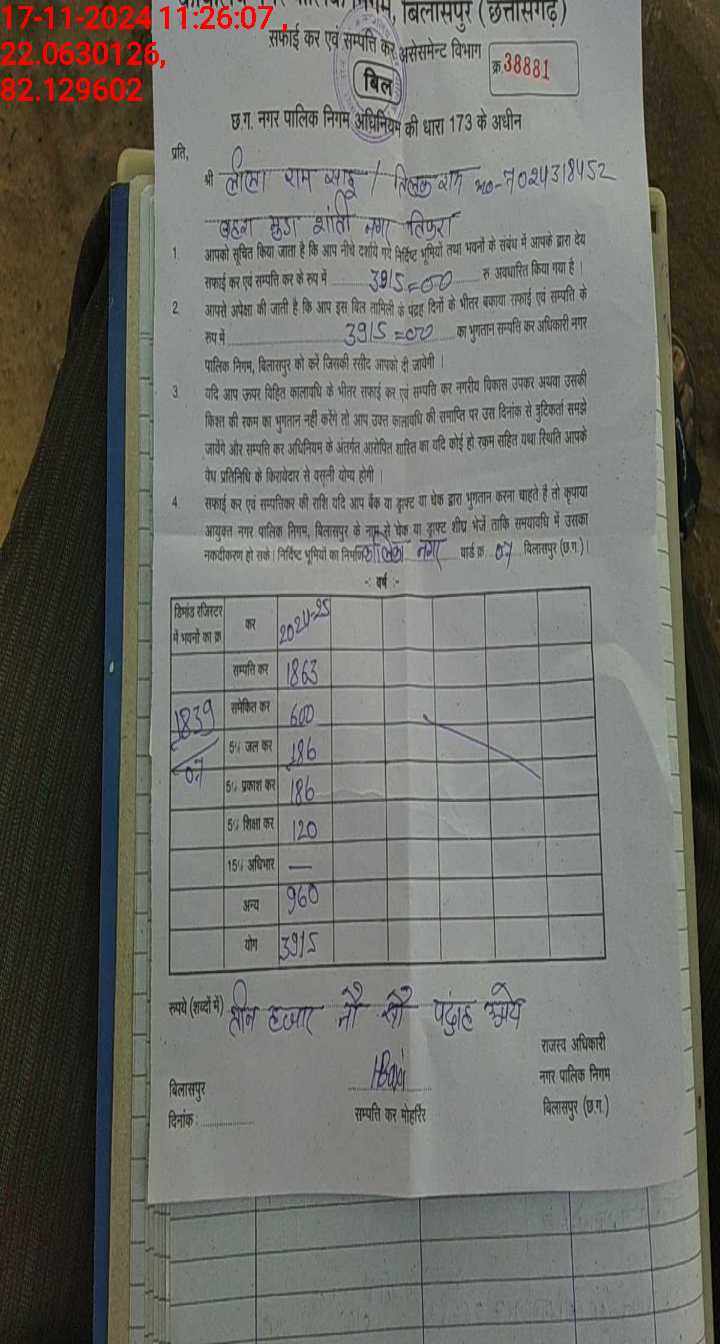 17-11-2024 11:26:07 ,
22.0630126,
82.129602
निगम, बिलासपुर (छत्तीसगढ़)
सफाई कर एवं सम्पत्ति कर असेसमेन्ट विभाग
क्र. 38881
बिल
छ.ग. नगर पालिक निगम अधिनियम की धारा 173 के अधीन
प्रति,
श्री लीला राम साहू / तिलक राम mo-7024318452
शांती नगर तिफरा
1. आपको सूचित किया जाता है कि आप नीचे दर्शाये गये निर्दिष्ट भूमियों तथा भवनों के संबंध में आपके द्वारा देय
सफाई कर एवं सम्पत्ति कर के रूप में 3915=00 रु अवधारित किया गया है।
2 आपसे अपेक्षा की जाती है कि आप इस बिल तामिली के पंद्रह दिनों के भीतर बकाया सफाई एवं सम्पत्ति के
रूप में 3915=00 का भुगतान सम्पत्ति कर अधिकारी नगर
पालिक निगम, बिलासपुर को करें जिसकी रसीद आपको दी जावेगी ।
3 यदि आप ऊपर विहित कालावधि के भीतर सफाई कर एवं सम्पत्ति कर नगरीय विकास उपकर अथवा उसकी
किश्त की रकम का भुगतान नहीं करेंगे तो आप उक्त कालावधि की समाप्ति पर उस दिनांक से त्रुटिकर्ता समझे
जायेंगे और सम्पत्ति कर अधिनियम के अंतर्गत आरोपित शास्ति का यदि कोई हो रकम सहित यथा स्थिति आपके
वेध प्रतिनिधि के किरायेदार से वसूली योग्य होगी ।
4 सफाई कर एवं सम्पत्तिकर की राशि यदि आप बैंक या ड्राफ्ट या चेक द्वारा भुगतान करना चाहते है तो कृपाया
आयुक्त नगर पालिक निगम, बिलासपुर के नाम से चेक या ड्राफ्ट शीघ्र भेजें ताकि समयावधि में उसका
नकदीकरण हो सके। निर्दिष्ट भूमियों का कालिका नगर वार्ड क्र. 07 बिलासपुर (छ.ग.)।
-: वर्ष :-
डिमांड रजिस्टर में भवनों का क्र. कर 2024-25
सम्पत्ति कर 1863
1839/07 समेकित कर 600
5% जल कर 186
5% प्रकाश कर 186
5% शिक्षा कर 120
15% अधिभार —
अन्य 960
योग 3915
रूपये (शब्दों में) तीन हजार नौ सौ पंद्राह रूपये
राजस्व अधिकारी
बिलासपुर नगर पालिक निगम
दिनांक : सम्पत्ति कर मोहर्रिर बिलासपुर (छ.ग.)